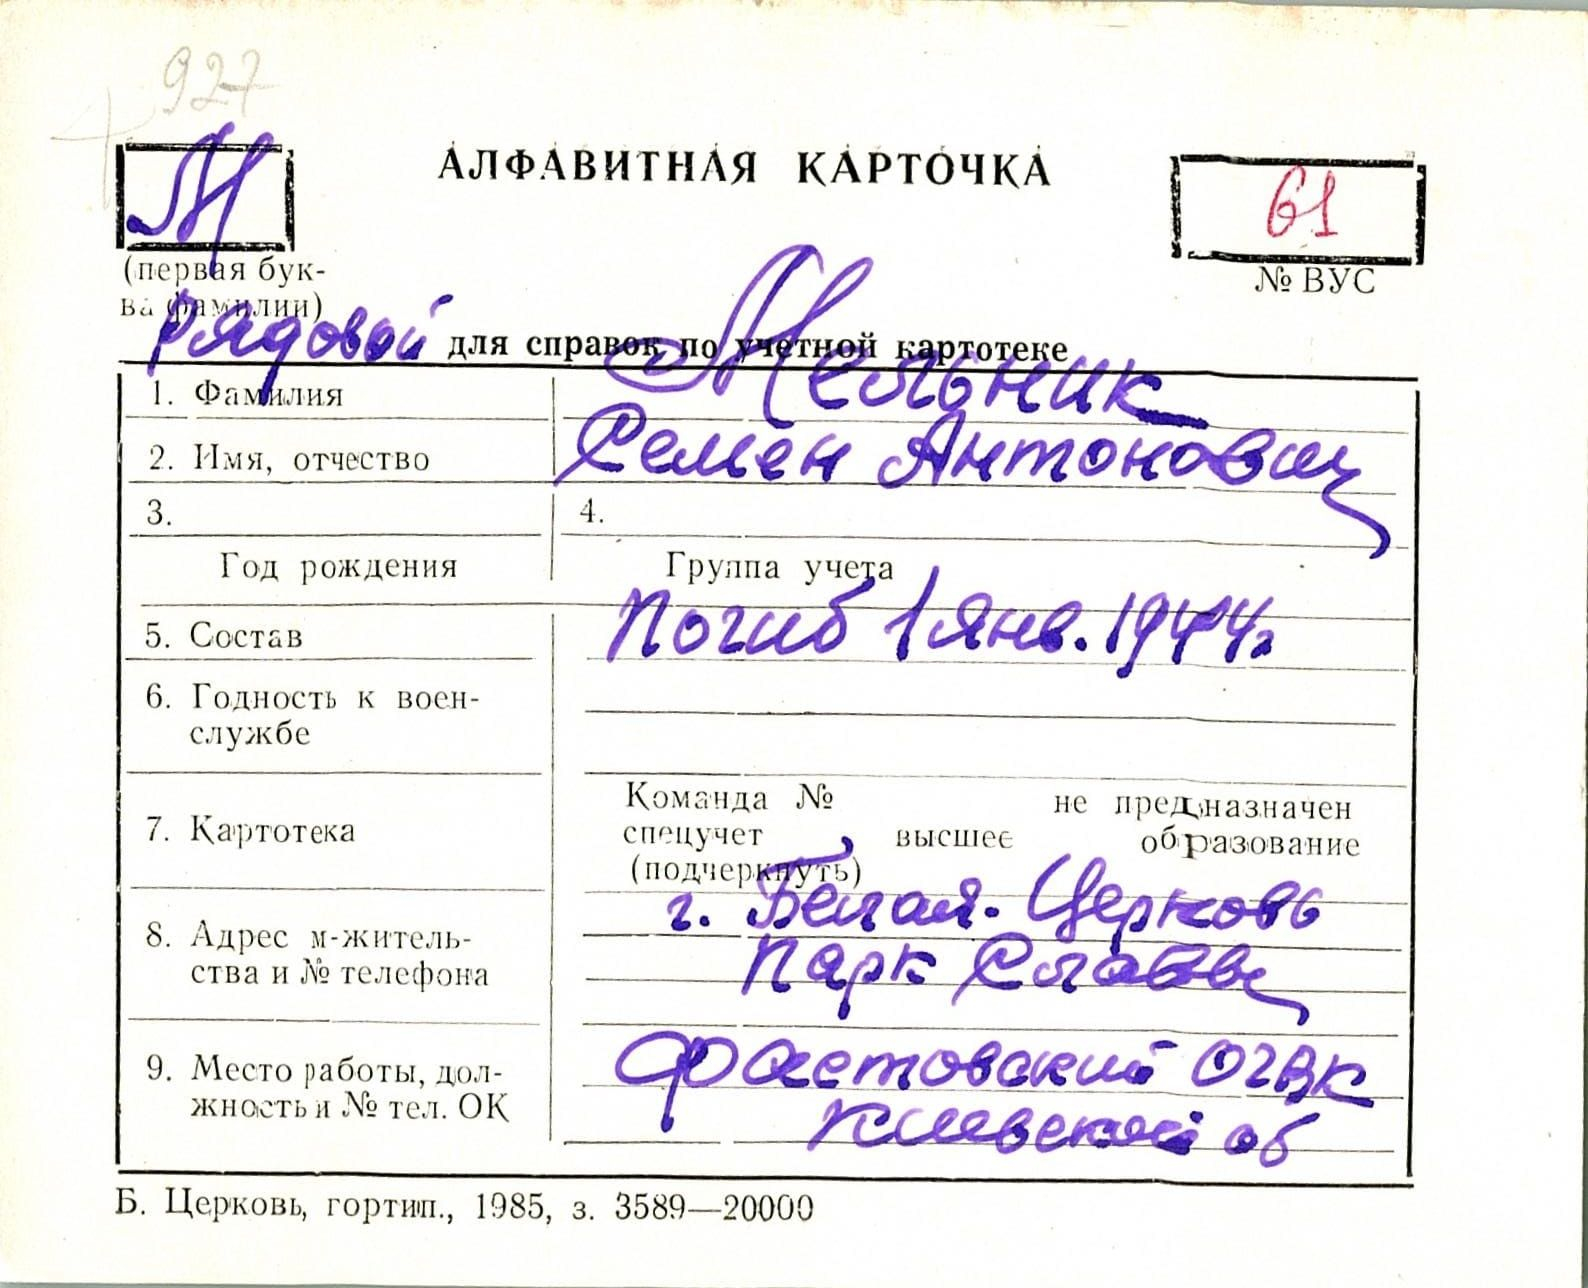 927
М
АЛФАВИТНАЯ КАРТОЧКА
61
(первая бук-
ва фамилии)
№ ВУС
Рядовой для справок по учетной картотеке
1. Фамилия Мельник
2. Имя, отчество Семен Антонович
3. 4.
Год рождения Группа учета
5. Состав Погиб 1 янв. 1944г
6. Годность к воен-
службе
Команда № не предназначен
7. Картотека спецучет высшее образование
(подчеркнуть)
г. Белая. Церковь
8. Адрес м-житель-
ства и № телефона Парк Славы
9. Место работы, дол- Фастовский ОГВК
жность и № тел. ОК Киевской об
Б. Церковь, гортип., 1985, з. 3589—20000